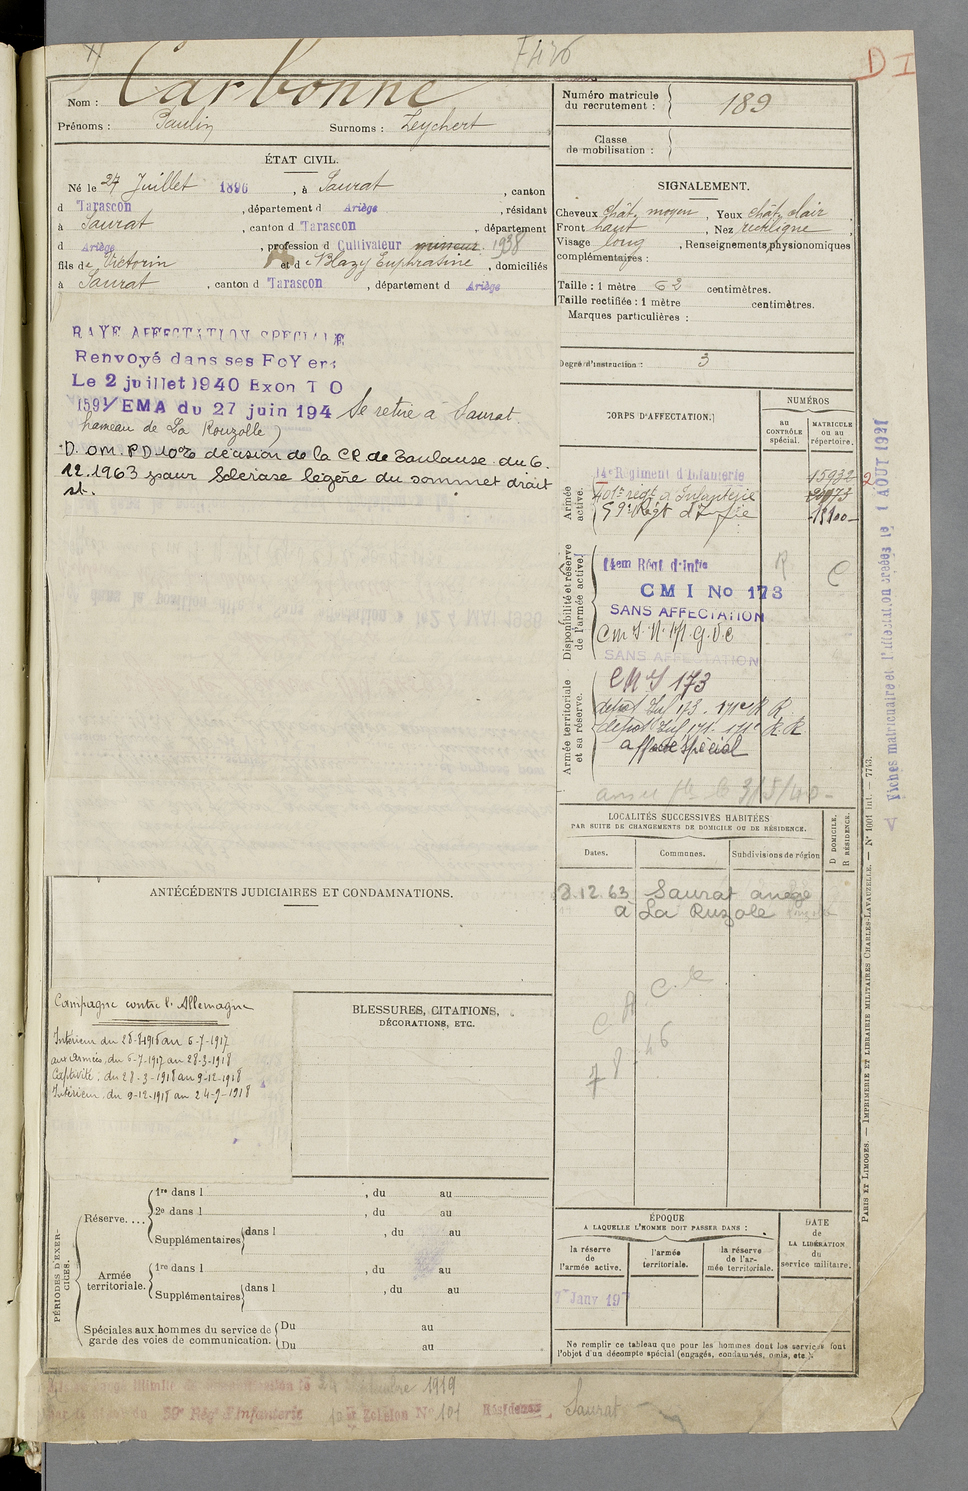 F426
D I
Nom : Carbonne
Prénoms : Paulin Surnoms : Leychert
ÉTAT CIVIL.
Né le 27 Juillet 1896, à Saurat, canton
d Tarascon, département d Ariège, résidant
à Saurat, canton d Tarascon, département
d Ariège, profession d Cultivateur 1938
fils de Victorin et d Blazy Euphrasine, domiciliés
à Saurat, canton d Tarascon, département d Ariège
RAYE AFFECTATION SPECIALE
Renvoyé dans ses FoYers
Le 2 juillet 1940 Exon T O
1591/EMA du 27 juin 194 Se retire à Saurat
hameau de La Rouzolle)
D. OM. P.D. 10% décision de la CR de Toulouse du 6.
12.1963 pour Sclérose légère du sommet droit
st.
ANTÉCÉDENTS JUDICIAIRES ET CONDAMNATIONS.
Campagne contre l'Allemagne
Intérieur du 28-8-1916 au 6-7-1917
aux Armées, du 6-7-1917 au 28-3-1918
Captivité : du 28-3-1918 au 9-12-1918
Intérieur du 9-12-1918 au 24-9-1918
BLESSURES, CITATIONS,
DÉCORATIONS, ETC.
PÉRIODES D'EXERCICES.
Réserve....
1re dans l , du au
2e dans l , du au
Supplémentaires dans l , du au
Armée
territoriale.
1re dans l , du au
Supplémentaires dans l , du au
Spéciales aux hommes du service de
garde des voies de communication.
Du au
Du au
1919
59e Rég d'Infanterie Echelon No 101 Résidence Saurat
Numéro matricule
du recrutement : 189
Classe
de mobilisation :
SIGNALEMENT.
Cheveux chât. moyen, Yeux chât. clair
Front haut, Nez rectiligne
Visage long, Renseignements physionomiques
complémentaires :
Taille : 1 mètre 62 centimètres.
Taille rectifiée : 1 mètre centimètres.
Marques particulières :
Degré d'instruction : 3
CORPS D'AFFECTATION.
NUMÉROS
au
CONTRÔLE
spécial.
MATRICULE
ou au
répertoire.
Armée
active.
14e Régiment d'Infanterie 15932
401e régt d'Infanterie
59e Régt d'Infie
Disponibilité et réserve
de l'armée active.
14em Régt d'infie R C
C M I No 173
SANS AFFECTATION
SANS AFFECTATION
Armée territoriale
et sa réserve.
CMI 173
depot Inf 173
depot Inf 171
affecté spécial
Fiches matriculaire et d'affectation créées le 1 AOUT 1931
LOCALITÉS SUCCESSIVES HABITÉES
PAR SUITE DE CHANGEMENTS DE DOMICILE OU DE RÉSIDENCE.
Dates. Communes. Subdivisions de région
D DOMICILE.
R RÉSIDENCE.
3.12.63 Saurat ariege
à La Ruzole
ÉPOQUE
A LAQUELLE L'HOMME DOIT PASSER DANS :
la réserve
de l'armée active.
l'armée
territoriale.
la réserve
de l'armée territoriale.
DATE
de
LA LIBÉRATION
du
service militaire.
Ne remplir ce tableau que pour les hommes dont les services font
l'objet d'un décompte spécial (engagés, condamnés, omis, etc.).
PARIS ET LIMOGES. — IMPRIMERIE ET LIBRAIRIE MILITAIRES CHARLES-LAVAUZELLE. — N° 1001 int. — 7713.